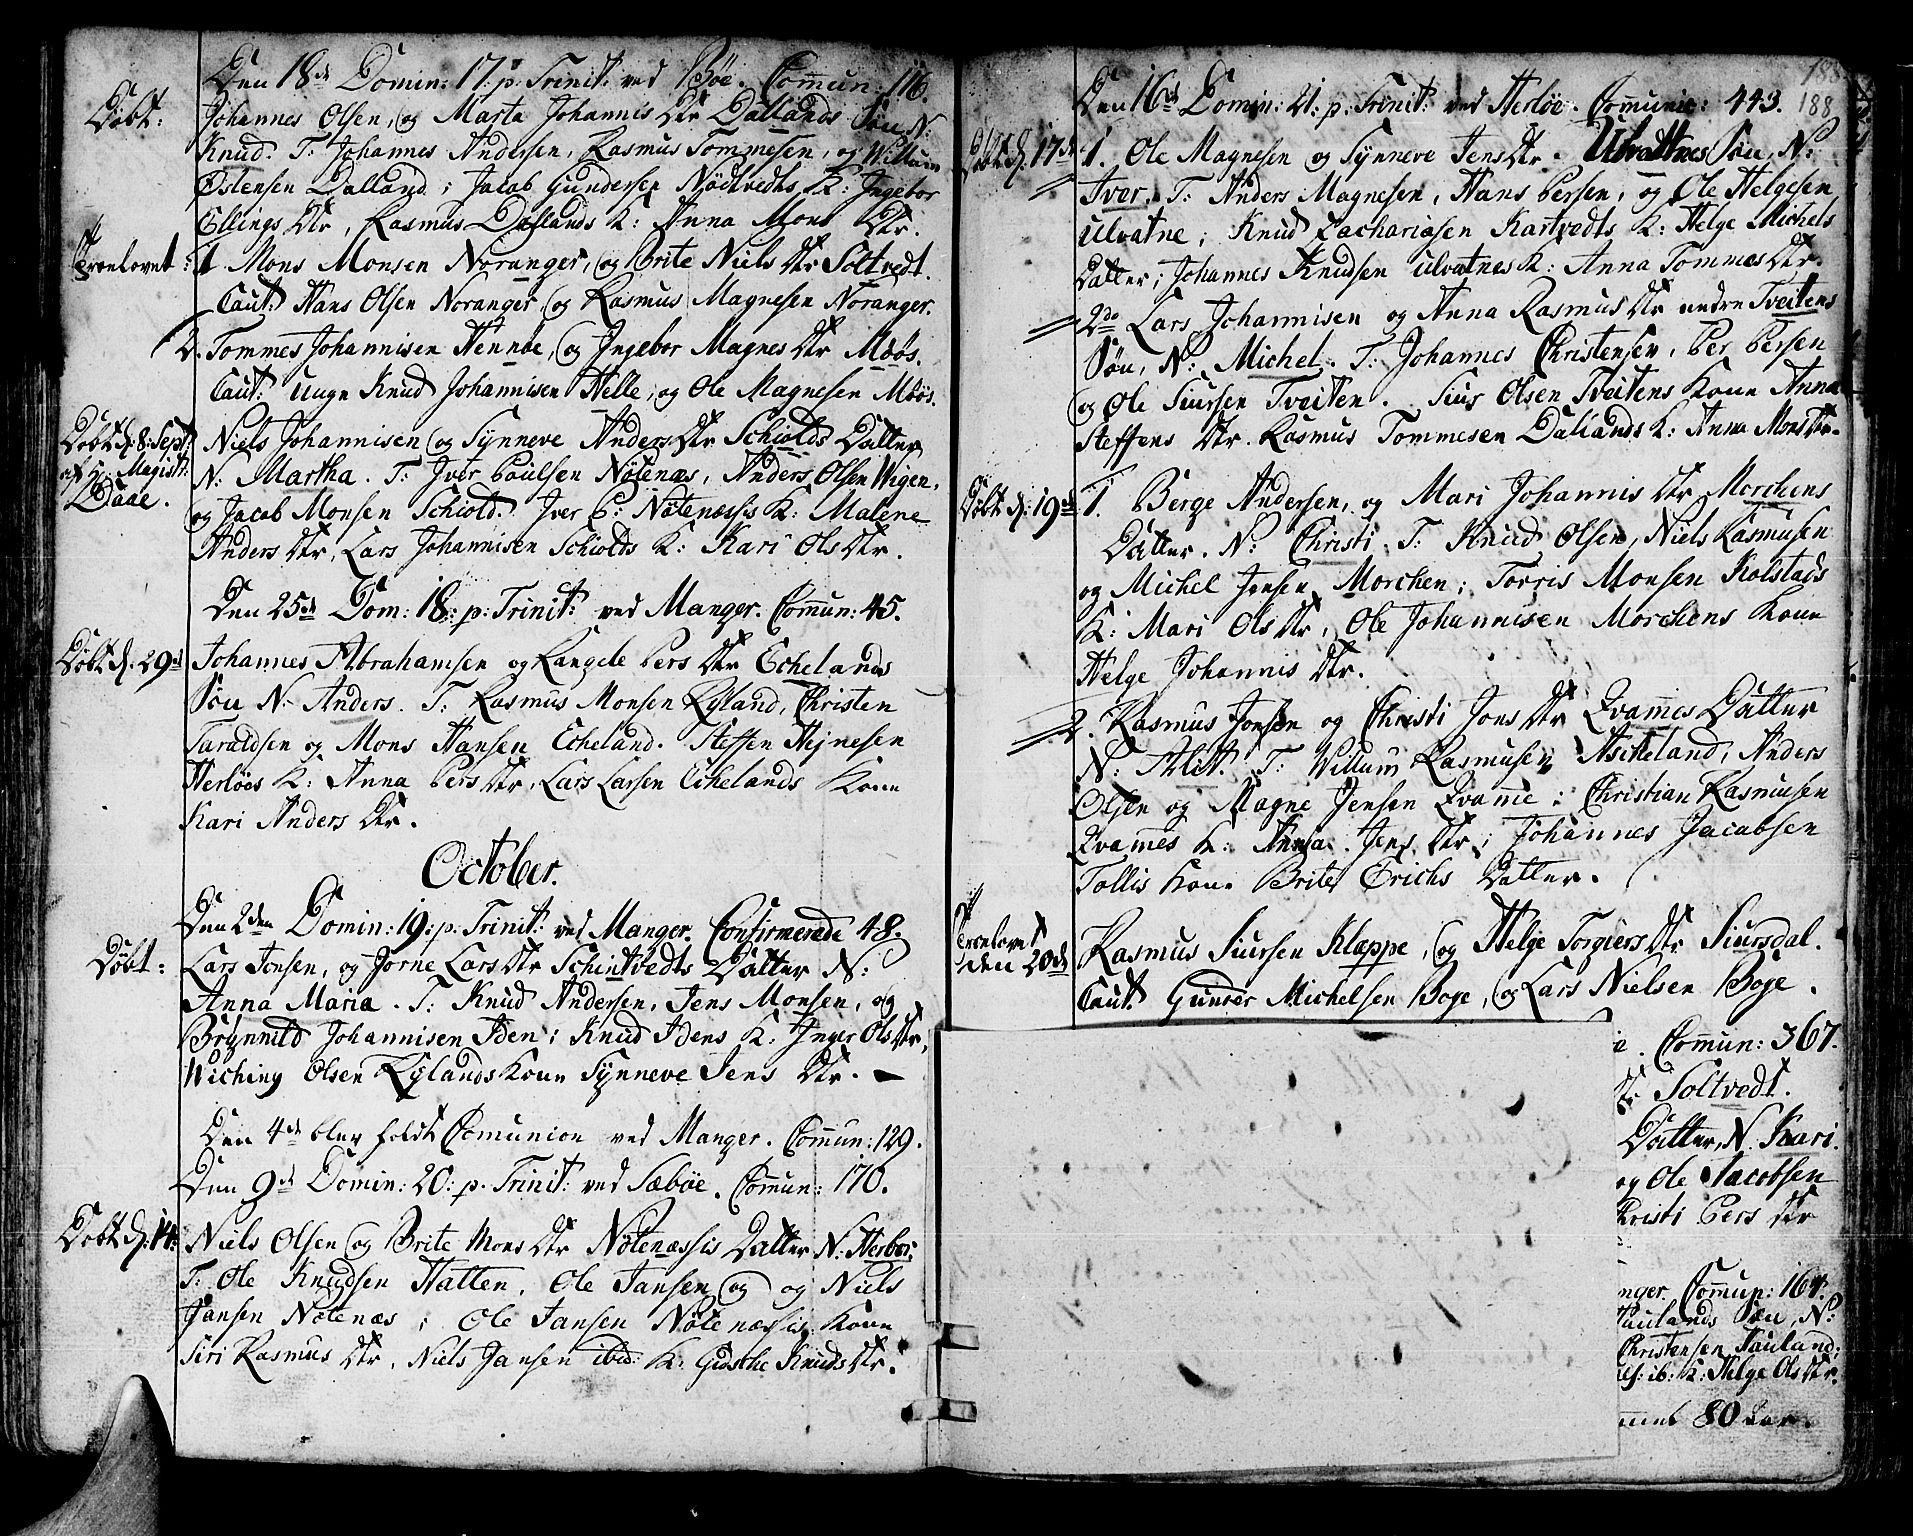 Den 18de Domin: 17. p. Trinit: ved Bøe. Com̄un: 116.
Døbt: Johannes Olsen, og Marta Johannis Dtr Dallands Søn N:
Knud. T: Johannes Andersen, Rasmus Tommesen, og Willum
Østensen Dalland; Jacob Gundersen Nødtvedts K: Ingebor
Ellings Dtr, Rasmus Dallands K: Anna Mons Dtr.
Troelovet: 1. Mons Monsen Noranger, og Brite Niels Dtr Soltvedt.
Caut: Hans Olsen Noranger og Rasmus Magnesen Noranger.
2. Tommes Johannisen Hennøe, og Ingebor Magnes Dtr Mdøs.
Caut: ungn Knud Johannisen Helle, og Ole Magnesen Mdøs.
Døbt d: 8: Sept: Niels Johannisen og Synneve Anders Dtr Schiolds Datter
af Hr Magistr: N: Martha. T: Jver Poulsen Nøtenæs, Anders Olsen Wigen,
Daae. og Jacob Monsen Schiold. Jver P: Nøtenæssis K: Malene
Anders Dtr, Lars Johannisen Schiolds K: Kari Ols Dtr.
Den 25de Dom: 18: p: Trinit: ved Manger. Com̄un: 45.
Døbt d. 29de Johannes Abrahamsen og Rangele Pers Dtr Echelands
Søn N: Anders. T: Rasmus Monsen Ryland, Christen
Taraldsen og Mons Hansen Echeland. Steffen Hejnesen
Herløes K: Anna Pers Dtr, Lars Larsen Echelands Kone
Kari Anders Dtr.
October.
Den 2den Domin: 19: p. Trinit: ved Manger. Confirmerede 48.
Døbt: Lars Jonsen, og Jorne Lars Dtr Schintvedts Datter N:
Anna Maria. T: Knud Andersen, Jens Monsen, og
Brynnild Johannisen Iden; Knud Idens K: Inger Ols Dtr,
Wiching Olsen Rylands Kone Synneve Jens Dtr.
Den 4de blev holdt Com̄union ved Manger. Com̄un: 129.
Den 9de Domin: 20: p. Trinit: ved Sæbøe. Com̄un: 170.
Døbt d. 14: Niels Olsen og Brite Mons Dtr Nøtenæssis Datter N: Herbor.
T: Ole Knudsen Hatten, Ole Jansen og og Niels
Jansen Nøtenæs; Ole Jansen Nøtenæssis Kone
Siri Rasmus Dtr, Niels Jansen ibid: K: Giøsche Knuds Dtr.
188
188
Den 16de Domin: 21. p. Trinit: ved Herløe. Com̄unic: 443.
Døbt d. 17de 1. Ole Magnesen og Synneve Jens Dtr. Ulvattnes Søn, N:
Jver. T: Anders Magnesen, Hans Persen, og Ole Helgesen
Ulvatne; Knud Zachariasen Kartvedts K: Helge Michels
Datter; Johannes Knudsen Ulvatnes K: Anna Tommes Dtr.
2do Lars Johannisen og Anna Rasmus Dtr nedre Tveitens
Søn, N: Michel. T: Johannes Christensen, Per Persen
og Ole Siursen Tveiten. Siur Olsen Tveitens Kone Anna
Steffens Dtr. Rasmus Tommesen Dallands K: Anna Mons Dtr.
Døbt d: 19de 1. Berge Andersen, og Mari Johannis Dtr Morchens
Datter. N: Christi. T: Knud Olsen, Niels Rasmusen
og Michel Jensen Morchen; Torris Monsen Kolstads
K: Mari Ols Dtr, Ole Johannisen Morchens Kone
Helge Johannis Dtr.
2. Rasmus Jonsen og Christi Jons Dtr Qvam̄es Datter
N: Alit. T: Villum Rasmusen Ascheland, Anders
Olsen og Magne Jensen Qvam̄e; Christian Rasmusen
Qvam̄es K: Anna Jens Dtr; Johannes Jacobsen
Tollis Kone Brite Erichs Datter.
Troelovet Rasmus Siursen Klæppe, og Helge Torgiers Dtr Siursdal.
den 20de Caut: Gunder Michelsen Boge, og Lars Nielsen Boge.
e. Com̄un: 367.
Dtr Soltvedt.
Datter, N. Kari.
og Ole Jacobsen
Christi Pers Dtr
nger. Com̄un: 164.
Taulands Søn, N:
Christensen Tauland;
els: ib: K: Helge Ols Dtr.
m̄el 80 Aar.